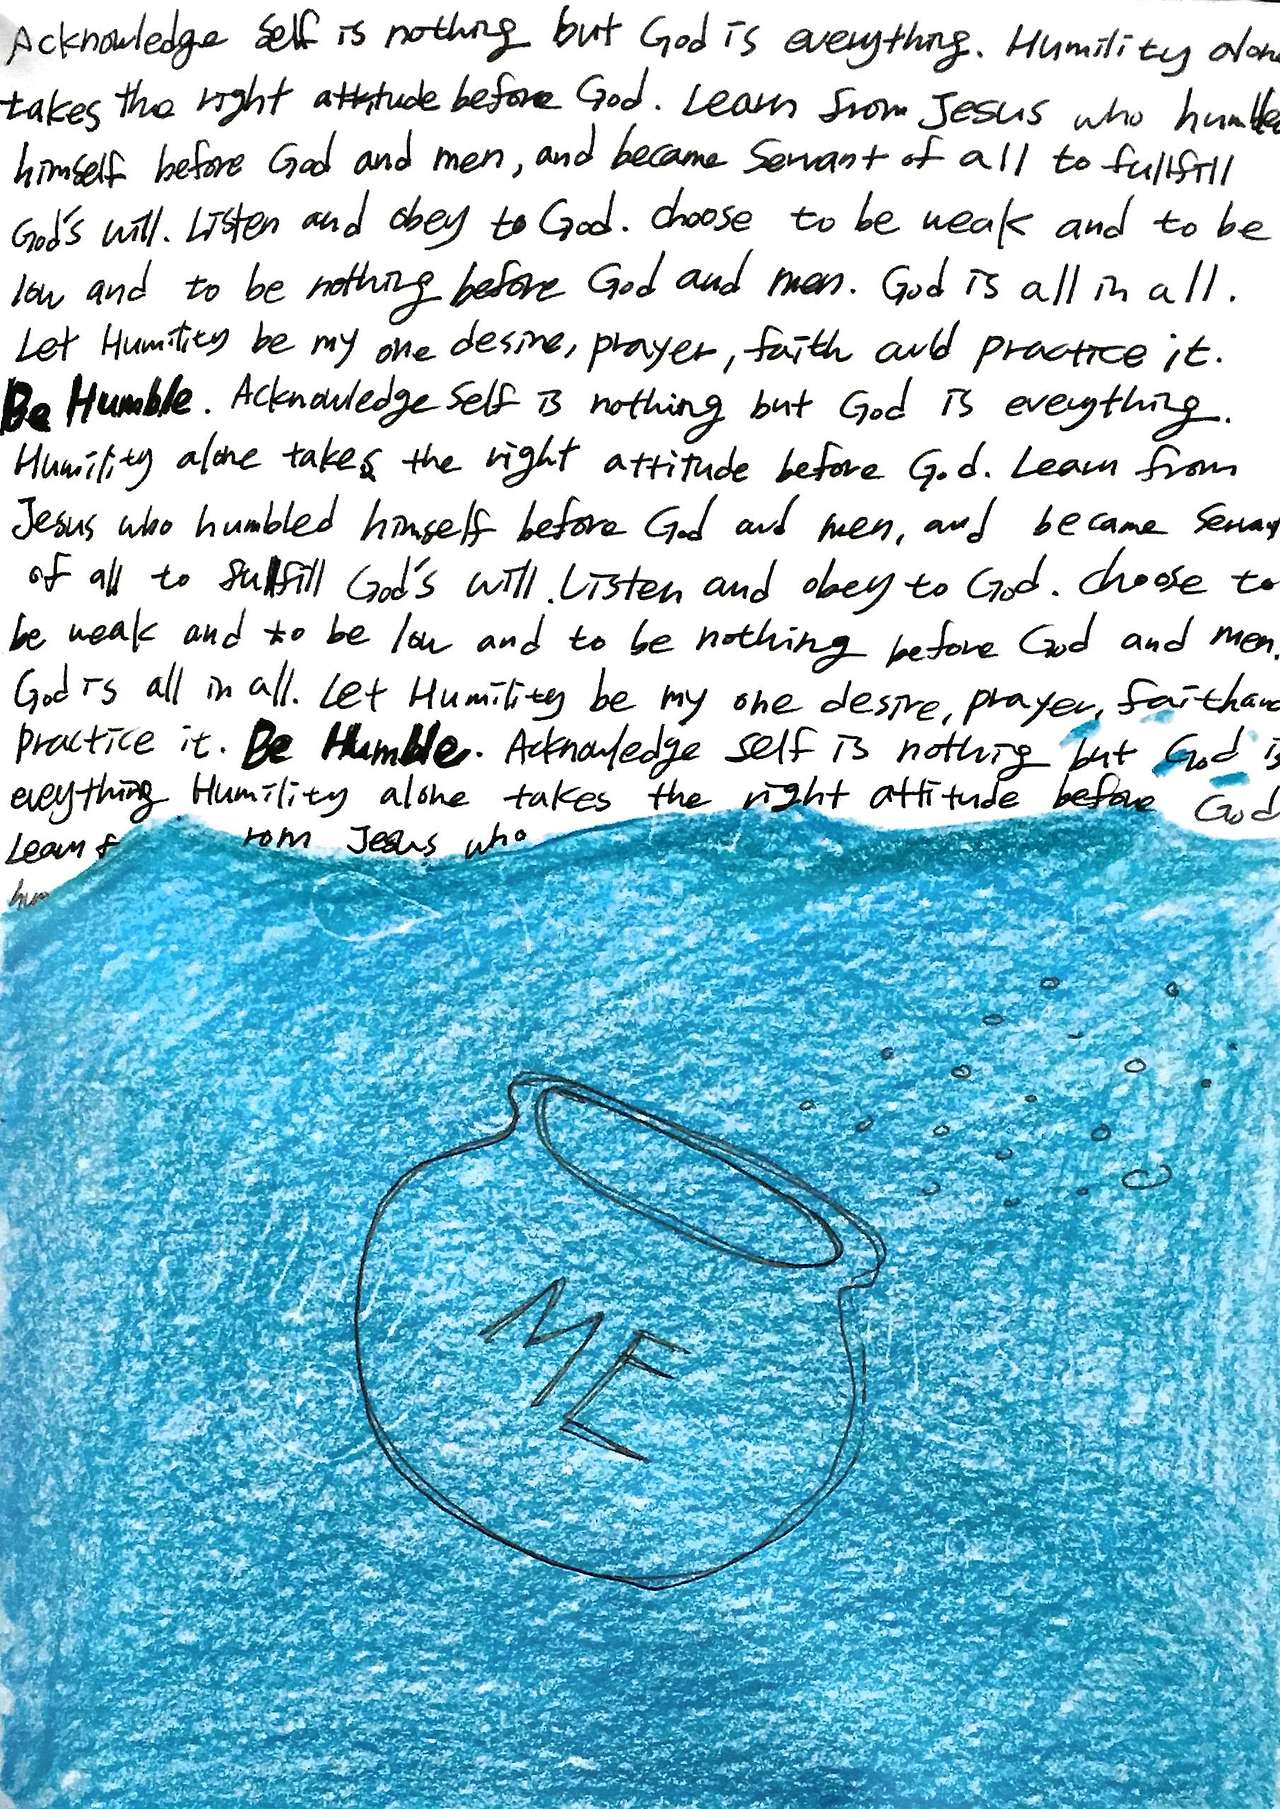 Acknowledge Self is nothing but God is everything. Humility alone
takes the right attitude before God. Learn from Jesus who humbled
himself before God and men, and became Servant of all to fullfill
God's will. Listen and obey to God. Choose to be weak and to be
low and to be nothing before God and men. God is all in all.
Let Humility be my one desire, prayer, faith and practice it.
Be Humble. Acknowledge Self is nothing but God is everything.
Humility alone takes the right attitude before God. Learn from
Jesus who humbled himself before God and men, and became Servant
of all to fulfill God's will. Listen and obey to God. Choose to
be weak and to be low and to be nothing before God and men.
God is all in all. Let Humility be my one desire, prayer, faith and
Practice it. Be Humble. Acknowledge self is nothing but God is
eveything Humility alone takes the right attitude before God
Learn f rom Jesus who
hum
ME